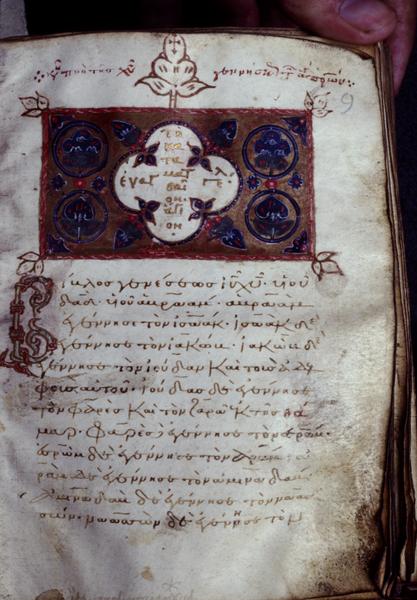 9
τὸ
κα
τὰ
εὐαγ ματ γέλι
θαῖ
ον
ἅγι
ον
Βίβλος γενέσεως ἰῦ χῦ· ὑιοῦ
δᾱδ· ὑιοῦ ἀβραάμ· ἀβραὰμ
ἐγέννησε τὸν ἰσαάκ· ἰσαὰκ δὲ
ἐγέννησε τὸν ἰακώβ· ἰακὼβ δὲ
ἐγέννησε τὸν ἰούδαν καὶ τοὺς ἀδελ
φοὺς αὐτοῦ· ἰούδας δὲ ἐγέννησε
τὸν φαρὲς καὶ τὸν ζαρὰ ἐκ τῆς θά
μαρ· φαρὲς δὲ ἐγέννησε τὸν ἐσρώμ·
ἐσρὼμ δὲ ἐγέννησε τὸν ἀράμ· ἀ
ρὰμ δὲ ἐγέννησε τὸν ἀμιναδάμ·
ἀμιναδὰμ δὲ ἐγέννησε τὸν ναασ
σών· ναασσὼν δὲ ἐγέννησε τὸν